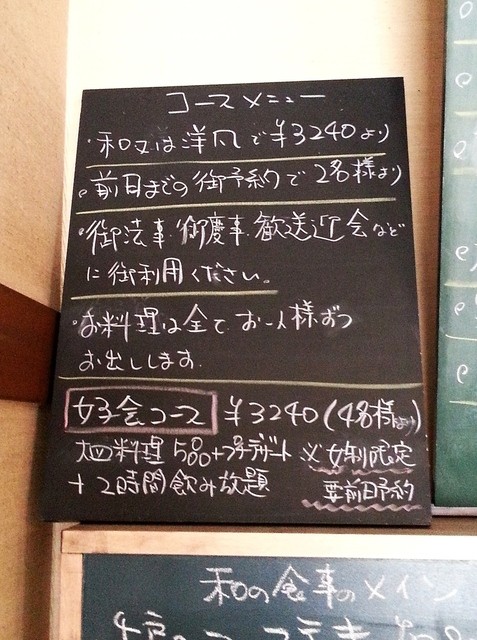 コースメニュー
・和又は洋風で¥3240より
・前日までの御予約で2名様より
・御法事・御慶事・歓送迎会など
に御利用ください。
・お料理は全てお一人様ずつ
お出しします
女子会コース ¥3240(4名様より)
大皿料理5品+プチデザート ※女性限定
+2時間飲み放題 要前日予約
和の食事のメイン